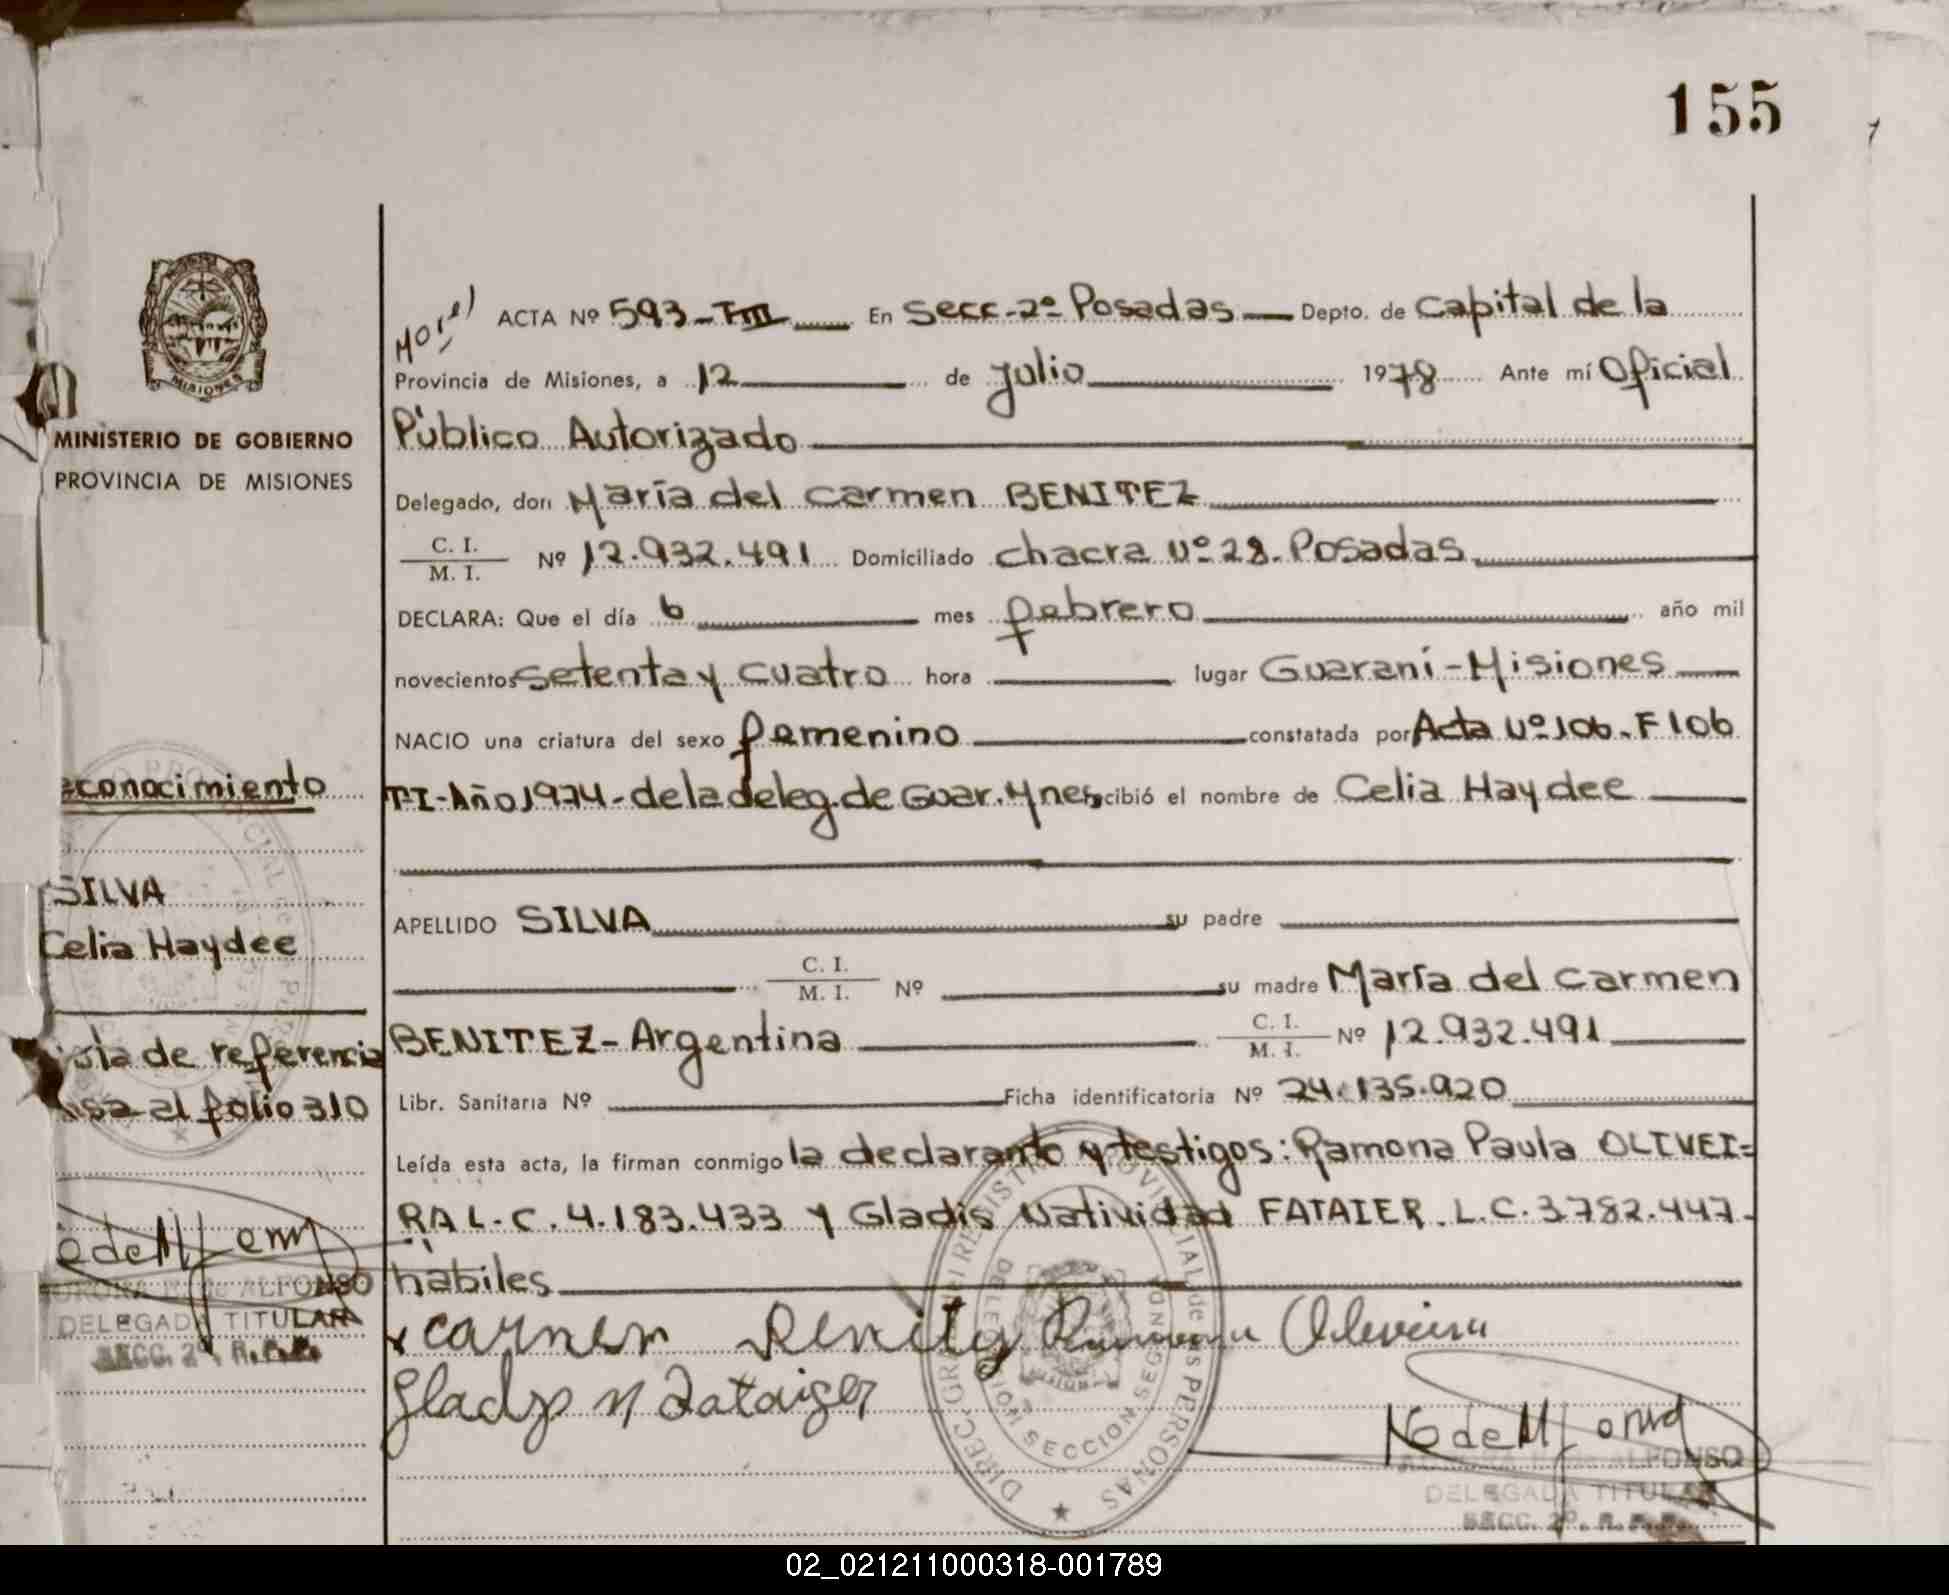 155
MISIONES
MINISTERIO DE GOBIERNO
PROVINCIA DE MISIONES
econocimiento
SILVA
Celia Haydee
de referencia
al folio 310
ALFONSO
DELEGADA TITULAR
SECC. 2º. R.P.P.
ACTA Nº 593-TIII En Secc-2º Posadas Depto. de Capital de la
Provincia de Misiones, a 12 de Julio 1978 Ante mí Oficial
Público Autorizado
Delegado, don María del Carmen BENITEZ
C. I.
M. I. Nº 12.932.491 Domiciliado chacra Nº 28. Posadas
DECLARA: Que el día 6 mes febrero año mil
novecientos setenta y cuatro hora lugar Guaraní-Misiones
NACIO una criatura del sexo femenino constatada por Acta Nº 106. F 106
TI-Año 1974-de la deleg. de Guar. Mnes. recibió el nombre de Celia Haydee
APELLIDO SILVA su padre
C. I.
M. I. Nº su madre María del Carmen
BENITEZ-Argentina C. I.
M. I. Nº 12.932.491
Libr. Sanitaria Nº Ficha identificatoria Nº 24.135.920
Leída esta acta, la firman conmigo la declarante y testigos: Ramona Paula OLIVEI=
RA L.C. 4.183.433 y Gladis Natividad FATAIER. L.C. 3.782.447-
habiles
Carmen Benitez Ramona Oliveira
Gladys N Fataiger
DIREC. GRAL REGISTRO PROVINCIAL de las PERSONAS
DELEGACION SECCION SEGUNDA
ALFONSO
DELEGADA TITULAR
SECC. 2º. R.P.P.
02_021211000318-001789